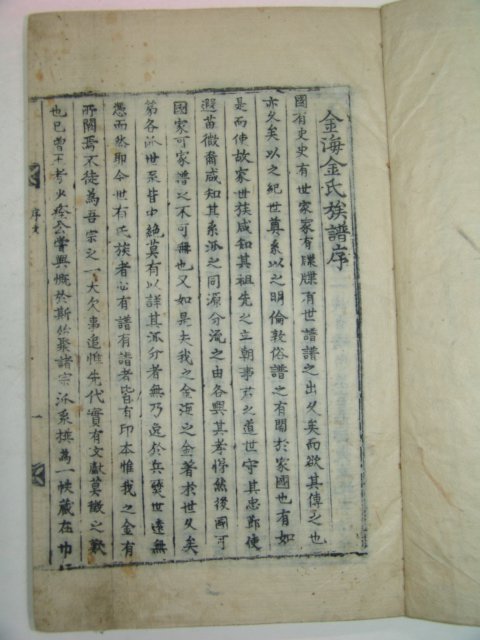 金海金氏族譜序
國有史史有世家家有牒牒有世譜譜之出久矣而欲其傳之也
亦久矣以之紀世奠系以之明倫敦俗譜之有關於家國也有如
是而使故家世族咸知其祖先之立朝事君之道世守其忠節使
遐苗微裔咸知其系派之同源分流之由各興其孝悌然後國可
國家可家譜之不可無也又如是夫我之金海之金著於世久矣
第各派世至皆中絶莫有以詳其派分者無乃逸於兵燹世遠無
憑而然耶今世有氏族者必有譜有譜者皆有印本惟我之金有
所闕焉不徒為吾宗之一大欠事追惟先代實有文獻莫徵之歎
也已曾不考必終公常興慨於斯收聚諸宗派系撰為一帙藏在巾
序文
一